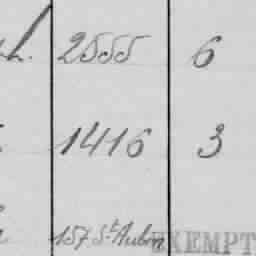 h. 2555 6
1416 3
157 St Aubin EXEMPT